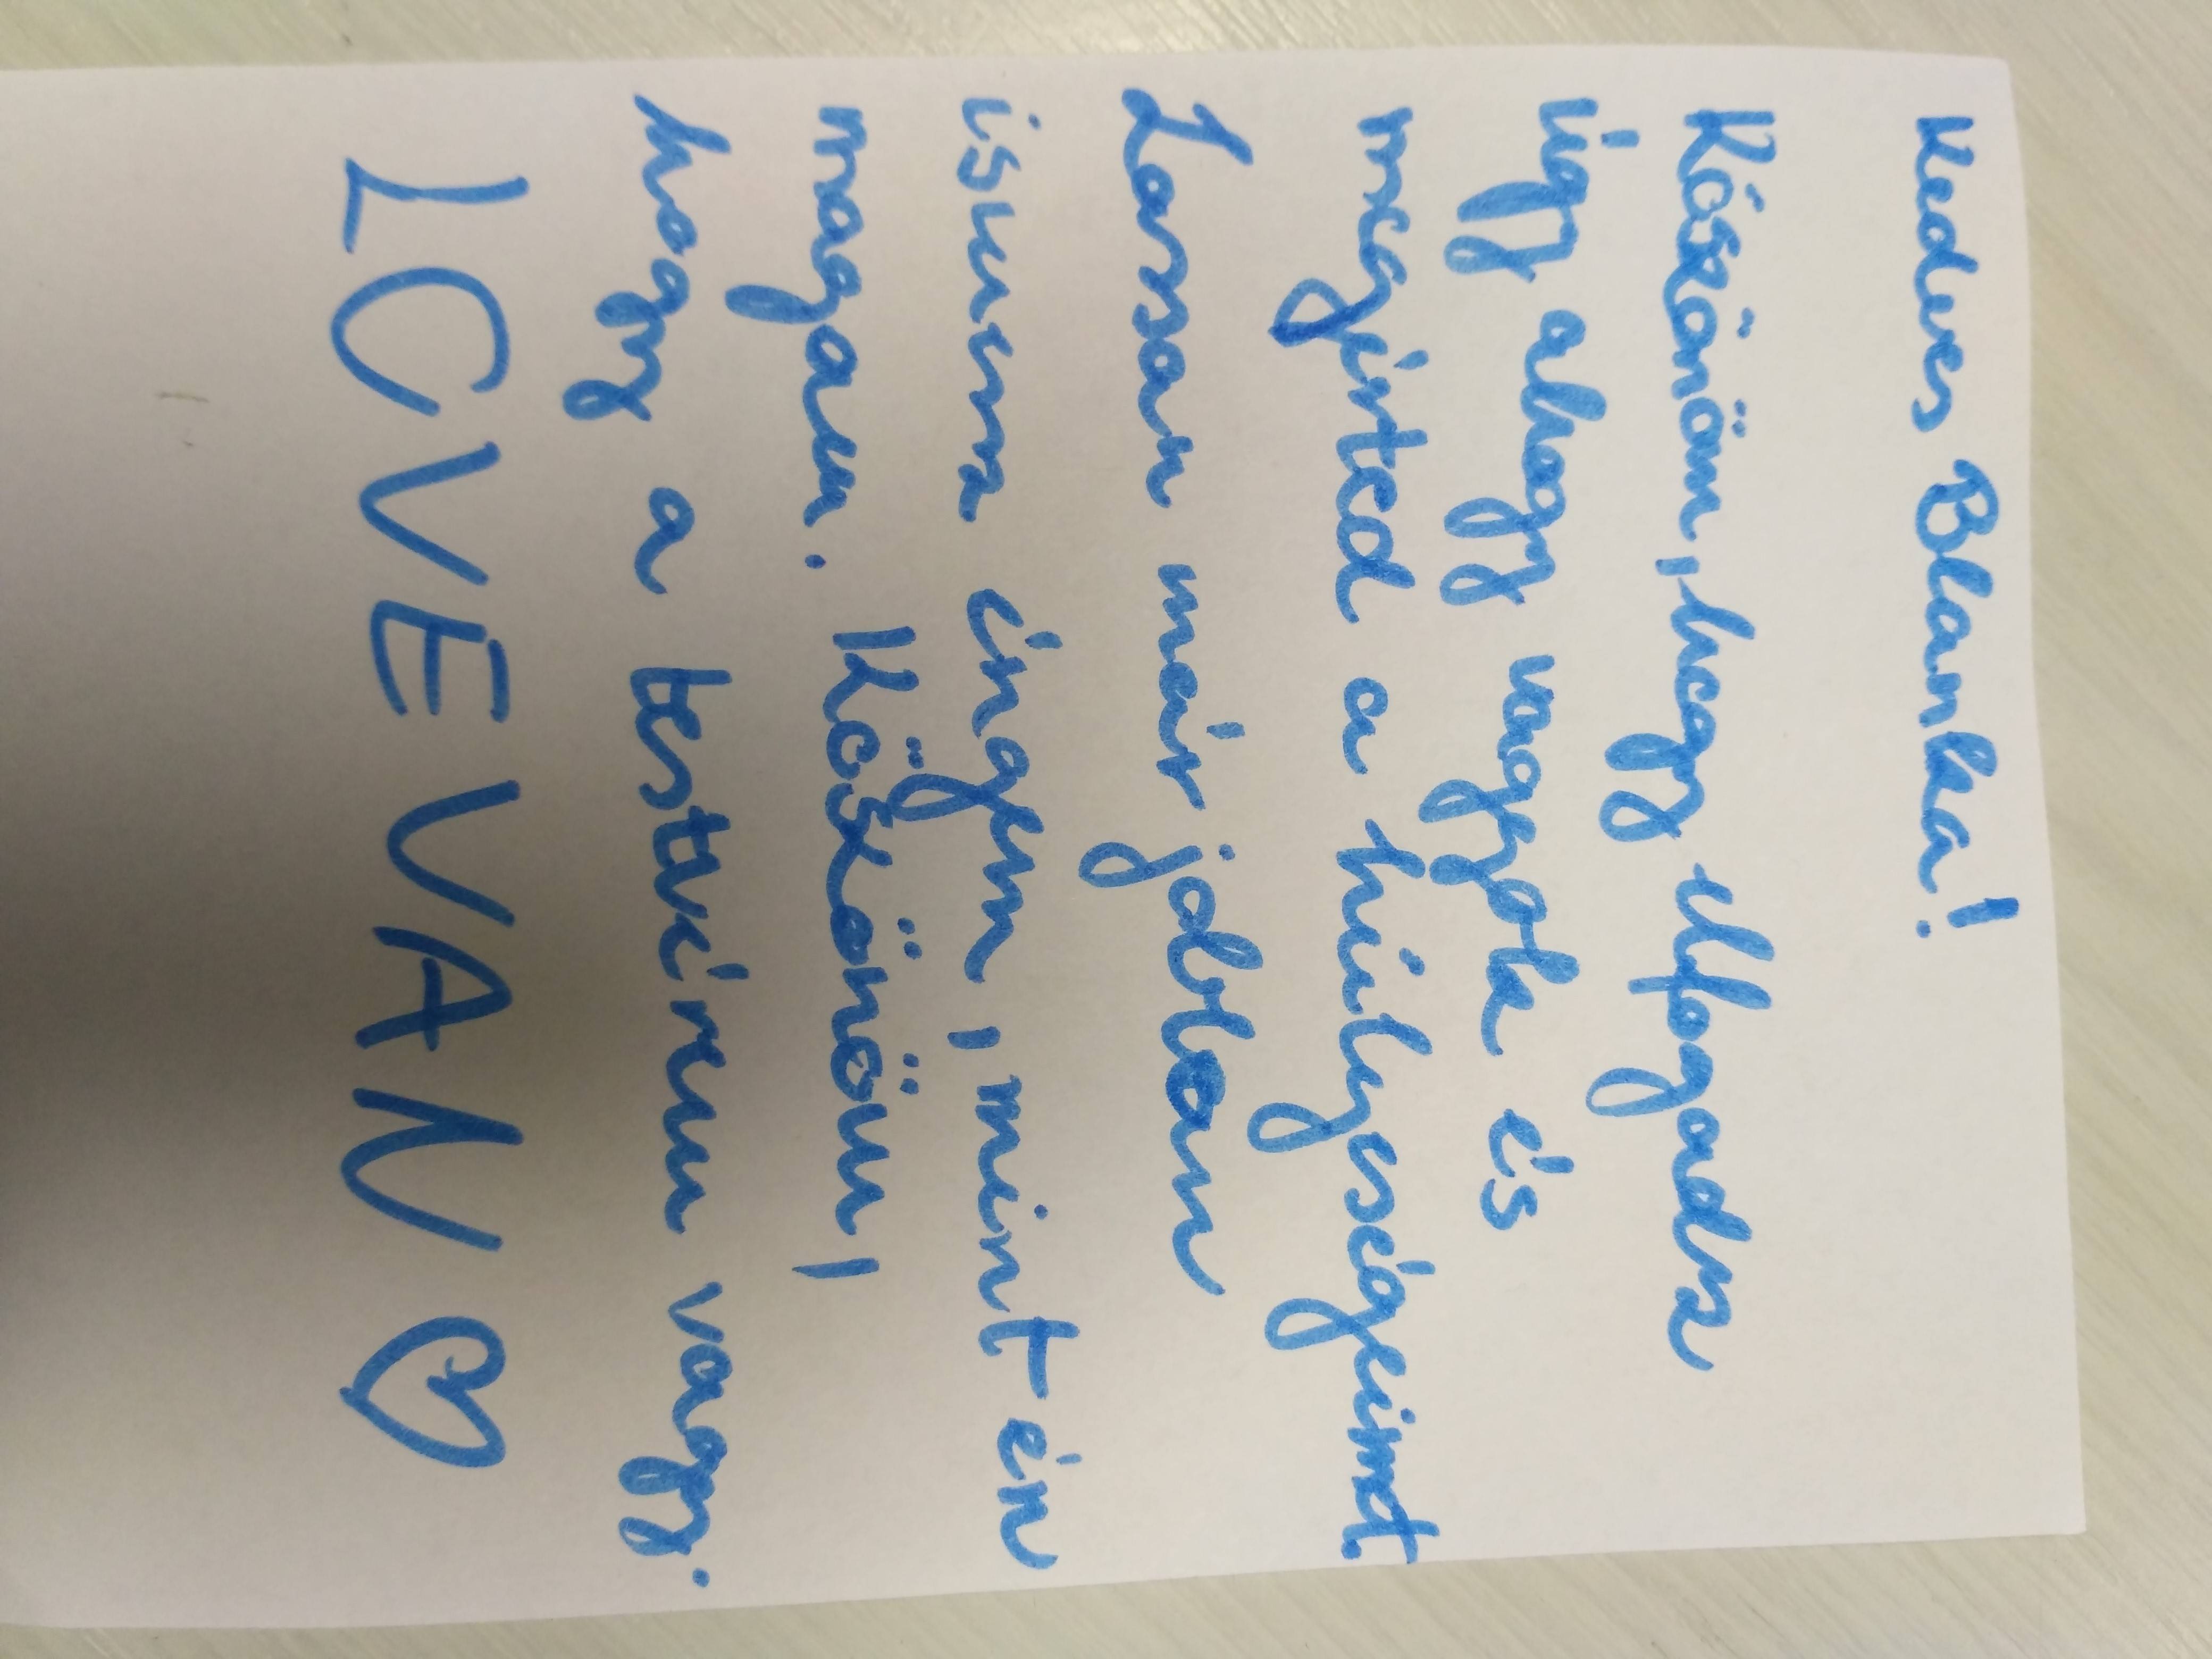 Kedves Blanka!
Köszönöm, hogy elfogadsz
úgy ahogy vagyok és
megérted a hülyeségeimet.
Lassan már jobban
ismersz engem, mint én
magam. Köszönöm,
hogy a testvérem vagy.
LOVE VAN ♡